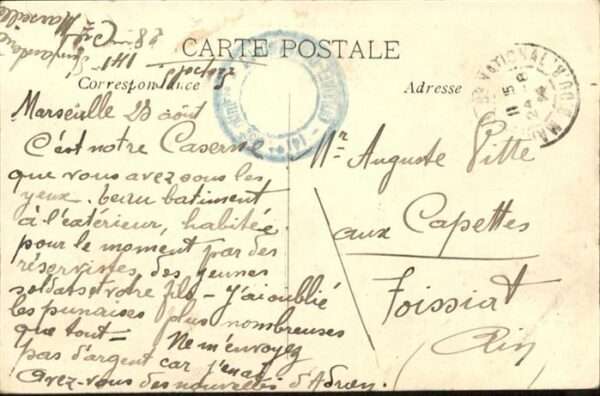 CARTE POSTALE
Correspondance
Adresse
Marseille
141e
Marseille 23 août
C'est notre Caserne
que vous avez sous les
yeux. beau batiment
à l'extérieur, habitée
pour le moment par des
réservistes, des jeunes
soldats et votre fils - J'ai oublié
les punaises plus nombreuses
que tout - Ne m'envoyez
pas d'argent car j'en ai
Avez-vous des nouvelles d'Adrien.
Mr Auguste Pitre
aux Capettes
Foissiat
Ain